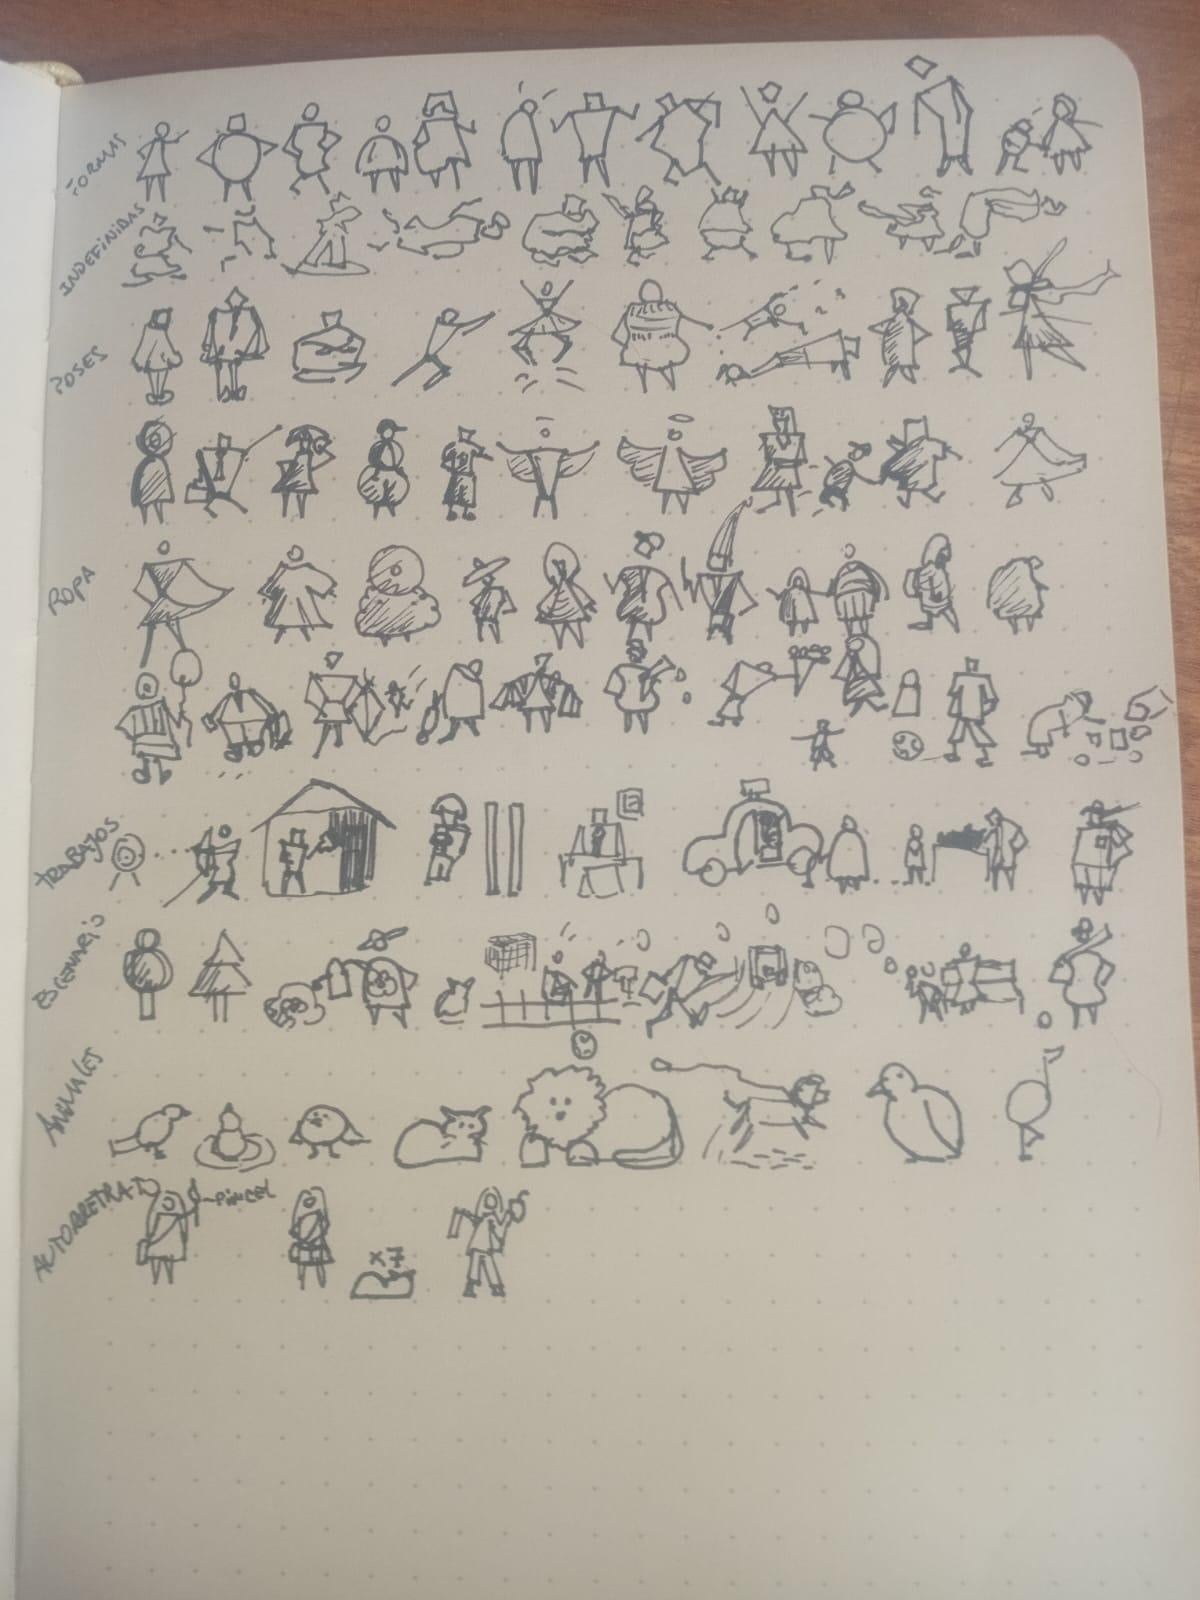 FORMAS
INDEFINIDAS
POSES
ROPA
TRABAJOS
ESCENARIO
ANIMALES
AUTORRETRATO
PINCEL
x7